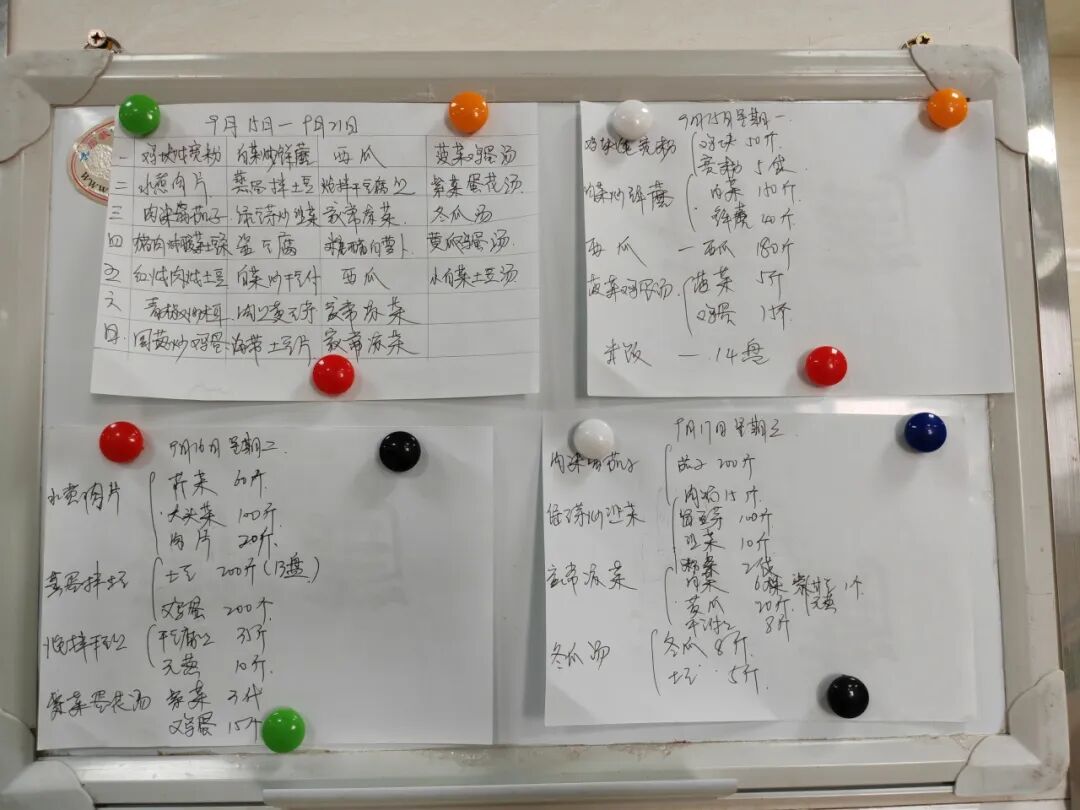 9月15日—9月21日
一 鸡块炖宽粉 白菜炒鲜蘑 西瓜 菠菜鸡蛋汤
二 水煮肉片 蒸蛋拌土豆 炝拌干豆腐丝 紫菜蛋花汤
三 肉沫酱茄子 绿豆芽炒韭菜 家常凉菜 冬瓜汤
四 猪肉炖酸菜土豆 豆腐 糖醋白萝卜 黄瓜鸡蛋汤
五 红烧肉炖土豆 白菜炒干豆付 西瓜 小白菜土豆汤
六 家常凉菜
日 炒鸡蛋 海带土豆片 家常凉菜
9月15日星期一
鸡块炖宽粉 鸡块 50斤
宽粉 5袋
白菜炒鲜蘑 白菜 150斤
鲜蘑 40斤
西瓜 — 西瓜 180斤
菠菜鸡蛋汤 菠菜 5斤
鸡蛋 15个
米饭 — 14盘
9月16日星期二
水煮肉片 芹菜 60斤
大头菜 100斤
肉片 20斤
蒸蛋拌土豆 土豆 200斤(13盘)
鸡蛋 200个
炝拌干豆丝 干豆腐丝 35斤
10斤
紫菜蛋花汤 紫菜 3代
鸡蛋 15个
9月17日星期三
肉沫酱茄子 茄子 200斤
肉沫 15斤
绿豆芽炒韭菜 绿豆芽 100斤
韭菜 10斤
家常凉菜 2代
白菜 6棵 1个
黄瓜 20斤
干付丝 8斤
冬瓜汤 冬瓜 8斤
土豆 5斤